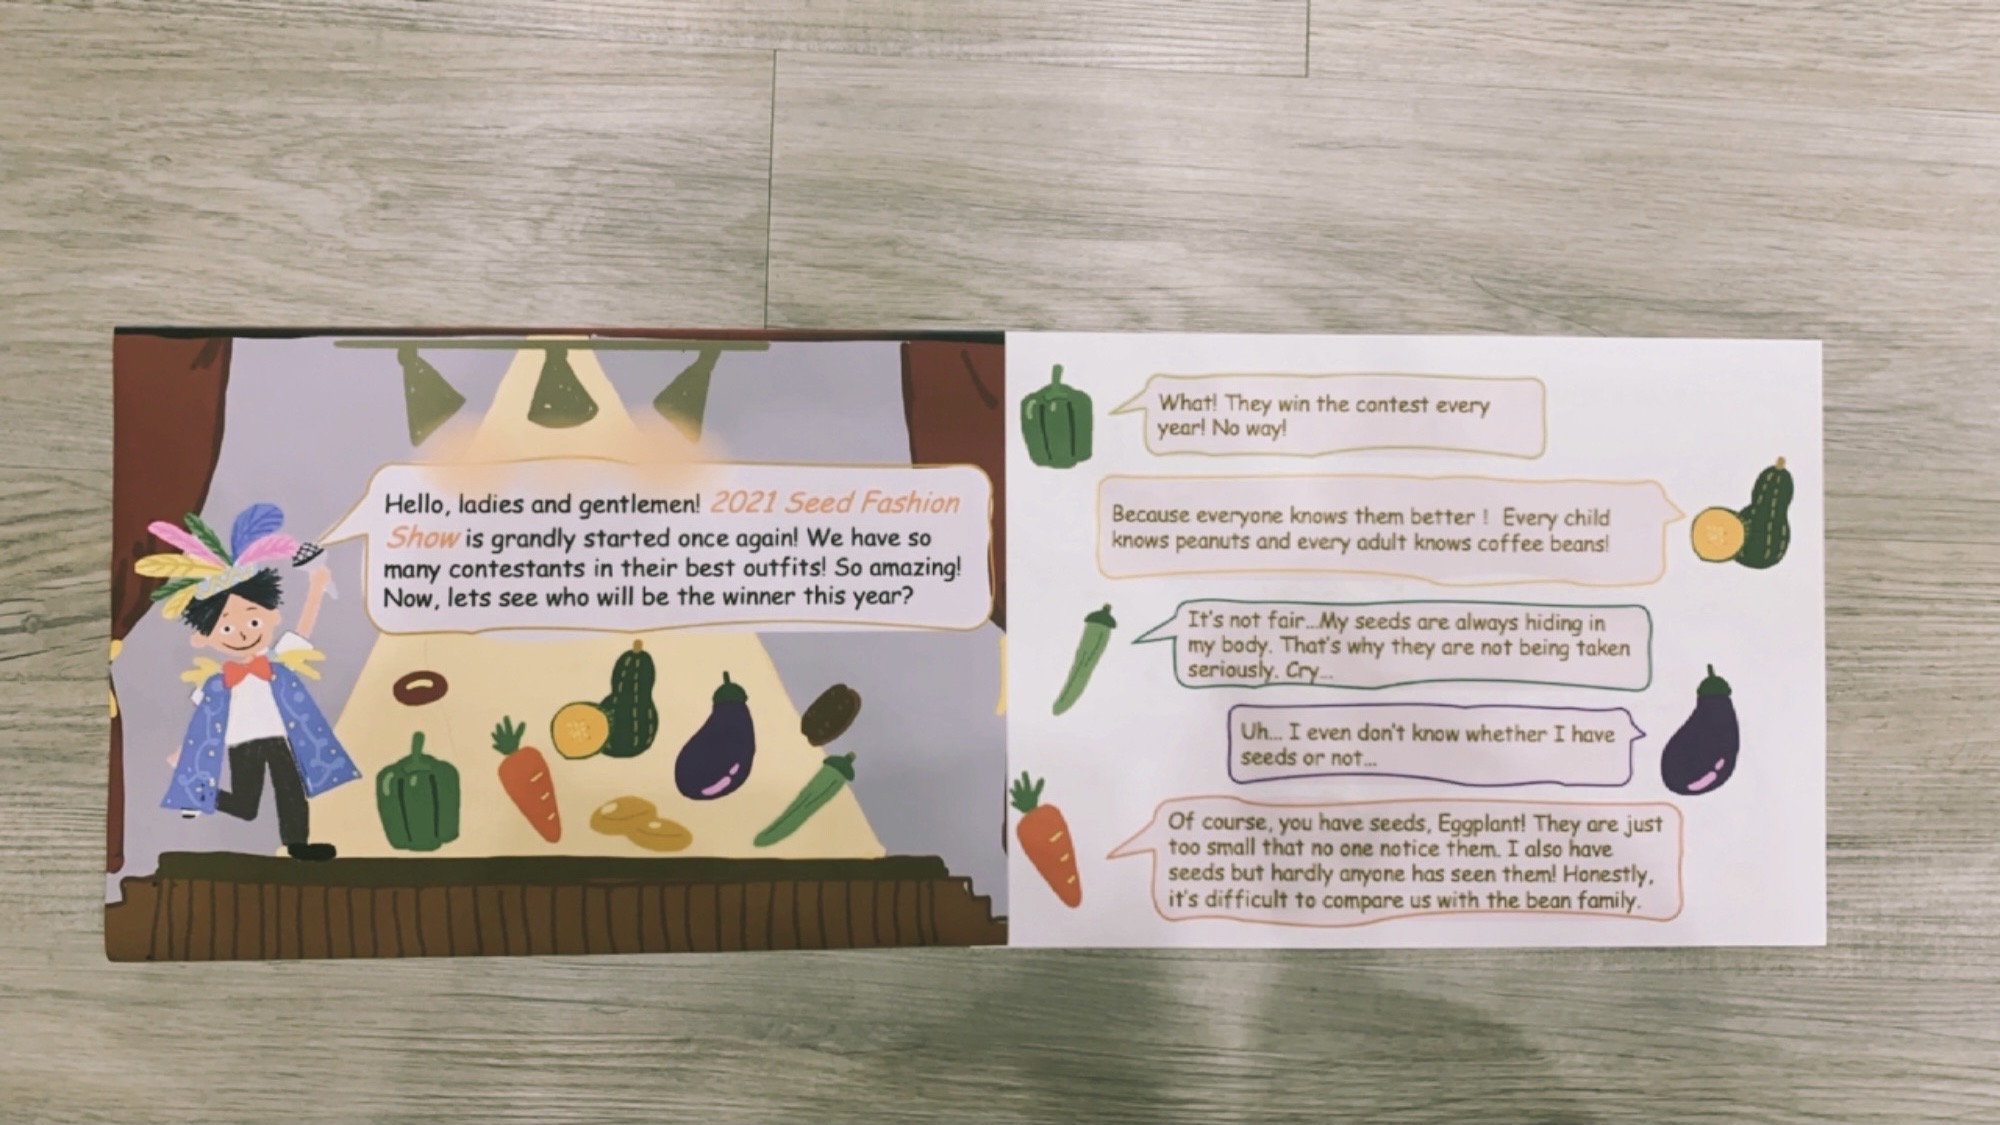 Hello, ladies and gentlemen! 2021 Seed Fashion
Show is grandly started once again! We have so
many contestants in their best outfits! So amazing!
Now, lets see who will be the winner this year?
What! They win the contest every
year! No way!
Because everyone knows them better ! Every child
knows peanuts and every adult knows coffee beans!
It's not fair...My seeds are always hiding in
my body. That's why they are not being taken
seriously. Cry...
Uh... I even don't know whether I have
seeds or not...
Of course, you have seeds, Eggplant! They are just
too small that no one notice them. I also have
seeds but hardly anyone has seen them! Honestly,
it's difficult to compare us with the bean family.